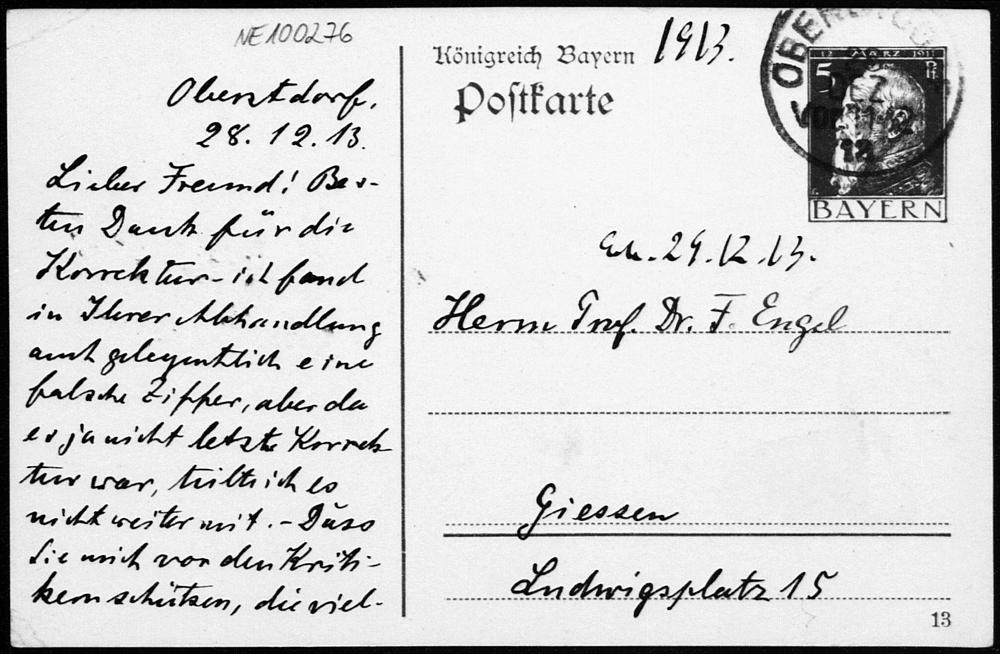 NE100276
Oberstdorf,
28.12.13.
Lieber Freund! Bes-
ten Dank für die
Korrektur - ich fand
in Ihrer Abhandlung
auch gelegentlich eine
falsche Ziffer, aber da
es ja nicht letzte Korrek-
tur war, teilte ich es
nicht weiter mit. - Dass
Sie mich vor den Kriti-
kern schützen, die viel-
Königreich Bayern 1913.
Postkarte
12 MÄRZ 1911
5 Pf.
DEZ
BAYERN
29.12.13.
Herrn Prof. Dr. F. Engel
Giessen
Ludwigsplatz 15
13